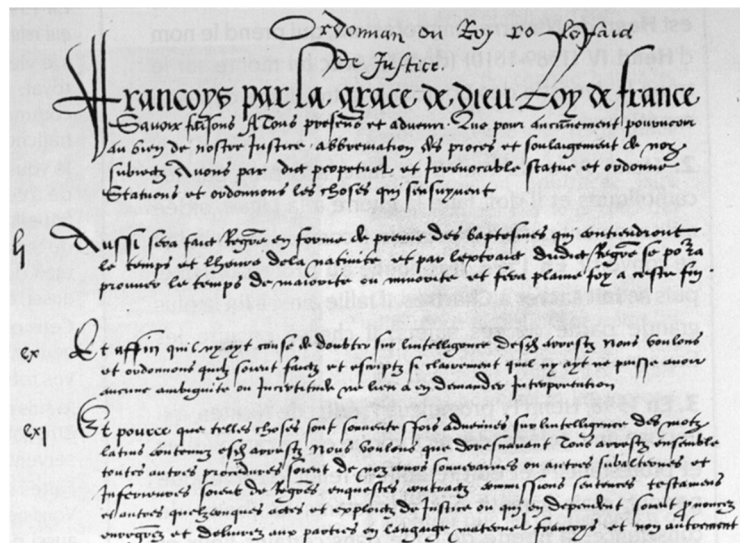 Ordonnan du Roy
de Justice
Francoys par la grace de dieu Roy de france
Savoir faisons A Tous presens et advenir Que pour aucunement pourveoir
au bien de nostre Justice abbreviation des proces et soulaigement de noz
subiectz Avons par edict perpetuel et Irrevocable statue et ordonne
Statuons et ordonnons les choses qui sensuyvent
Aussi sera faict Regre en forme de preuve des baptesmes qui contiendront
le temps et lheure de la nativite et par lextraict dudict Regre se pora
prouver le temps de maiorite ou minorite et fera plaine foy a ceste fin
Et affin quil ny ayt cause de doubter sur lintelligence desdz arrestz nous voulons
et ordonnons quilz soient faictz et escriptz si clairement quil ny ayt ne puisse avoir
ambiguite ou Incertitude ne lieu a en demander Interpretation
Et pource que telles choses sont souventesfois advenues sur lintelligence des motz
latins contenuz esdz arrestz Nous voulons que doresnavant Tous arrestz ensemble
toutes autres procedures soient de noz cours souveraines ou autres subalternes et
Inferieures soient de Regres enquestes contractz commissions sentences testamens
et autres quelzconques actes et exploictz de Justice ou qui en dependent soient pronocez
enregrez et delivrez aux parties en langaige maternel francoys et non autrement